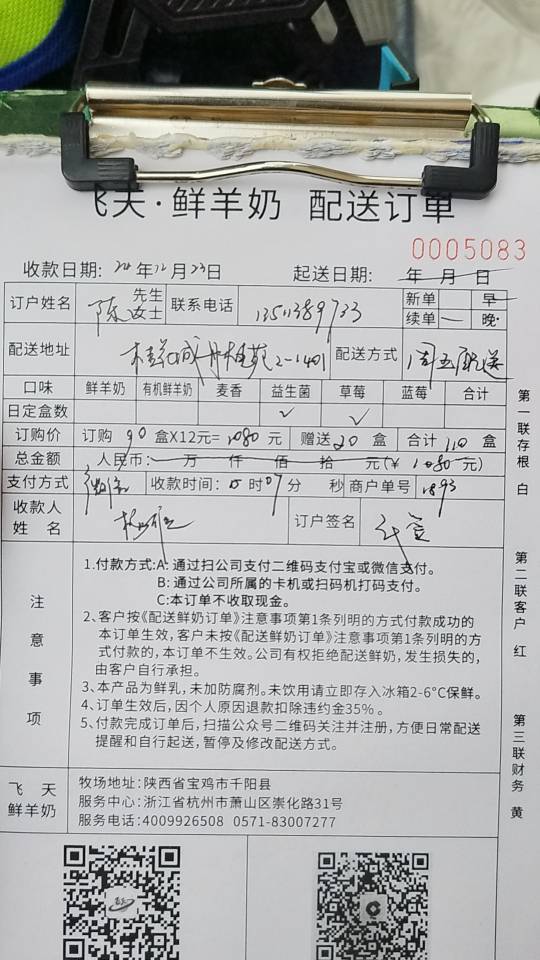 飞天·鲜羊奶 配送订单
0005083
收款日期: 年12月23日 起送日期: 年 月 日
订户姓名 陈 先生 女士 联系电话 新单 早
续单 晚
配送地址 2-1401 配送方式 周五配送
口味 鲜羊奶 有机鲜羊奶 麦香 益生菌 草莓 蓝莓 合计
日定盒数 ✓ ✓
订购价 订购 90 盒X12元=1080元 赠送20盒 合计110盒
总金额 人民币: 万 仟 佰 拾 元(¥ 1080元)
支付方式 微信 收款时间: 15时07分 秒 商户单号 1893
收款人 姓名 订户签名
注意事项
1.付款方式:A: 通过扫公司支付二维码支付宝或微信支付。
B: 通过公司所属的卡机或扫码机打码支付。
C:本订单不收取现金。
2、客户按《配送鲜奶订单》注意事项第1条列明的方式付款成功的
本订单生效,客户未按《配送鲜奶订单》注意事项第1条列明的方
式付款的,本订单不生效。公司有权拒绝配送鲜奶,发生损失的,
由客户自行承担。
3、本产品为鲜乳,未加防腐剂。未饮用请立即存入冰箱2-6°C保鲜。
4、订单生效后,因个人原因退款扣除违约金35%。
5、付款完成订单后,扫描公众号二维码关注并注册,方便日常配送
提醒和自行起送,暂停及修改配送方式。
飞天 鲜羊奶
牧场地址:陕西省宝鸡市千阳县
服务中心:浙江省杭州市萧山区崇化路31号
服务电话:4009926508 0571-83007277
第一联存根 白
第二联客户 红
第三联财务 黄